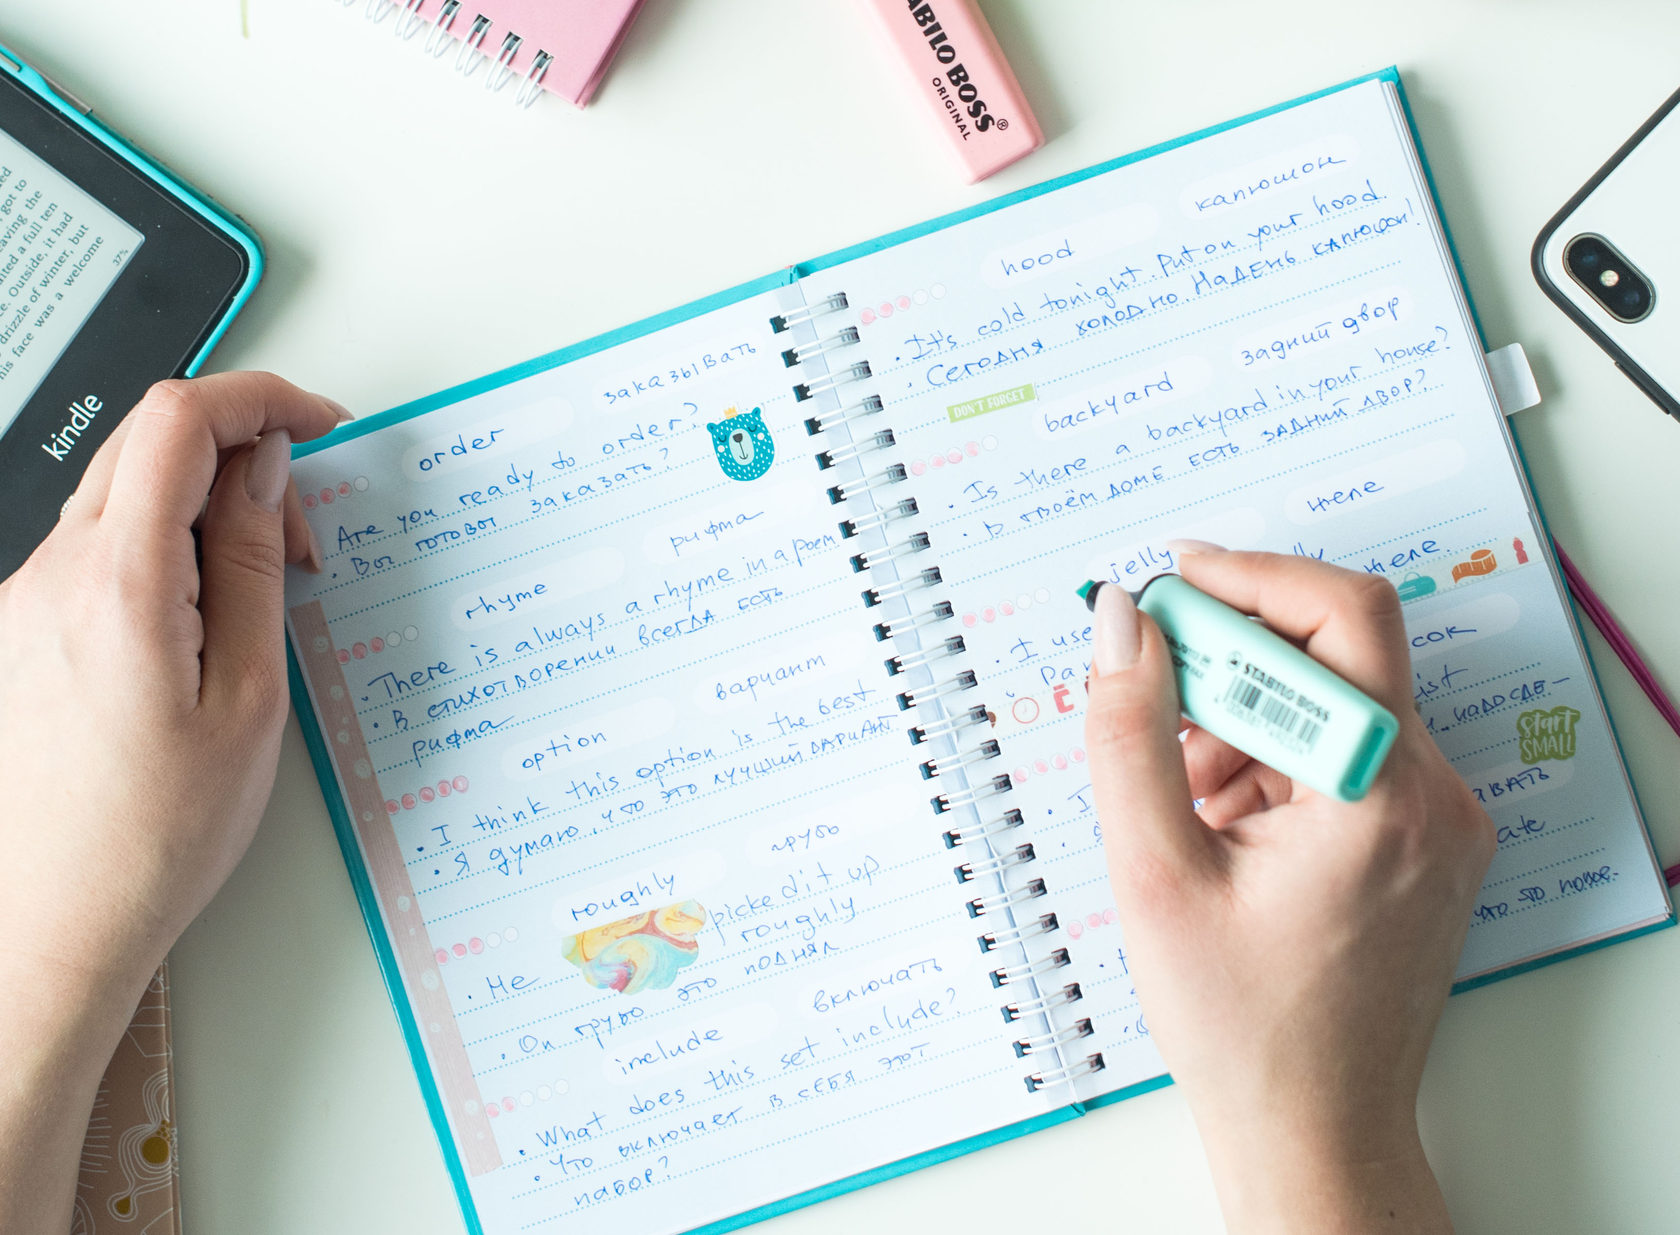 got to
leaving the
Outside, it had
drizzle of winter, but
his face was a welcome
37%
kindle
STABILO BOSS®
ORIGINAL
order
заказывать
Are you ready to order?
Вы готовы заказать?
rhyme
рифма
There is always a rhyme in a poem
В стихотворении всегда есть
рифма
option
вариант
I think this option is the best
Я думаю, что это лучший вариант
roughly
грубо
He picked it up
roughly
Он грубо это поднял
include
включать
What does this set include?
Что включает в себя этот
набор?
hood
капюшон
It's cold tonight. Put on your hood.
Сегодня холодно. Надень капюшон!
DON'T FORGET
backyard
задний двор
Is there a backyard in your house?
В твоём доме есть задний двор?
jelly
желе
I use
желе.
надо сде-
START
SMALL
что это
STABILO BOSS